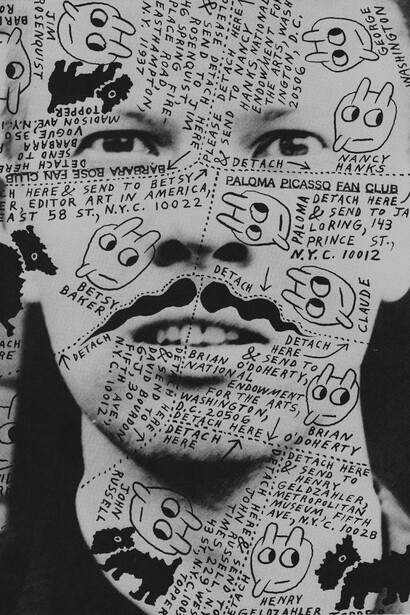 JIM
ROSENQUIST
GEORGE
WASHINGTON
& SEND TO JIM
ROSENQUIST,
PLACE ROAD, FIRE
EASTHAMPTON,
N.Y. 11937
PLEASE DETACH HERE
& SEND TO NANCY
HANKS, NATIONAL
ENDOWMENT FOR
THE ARTS, WASH
INGTON, D.C.
20506
DETACH
NANCY
HANKS
TOPPER
MADISON AVE, N.Y.
VOGUE, 350
BARBARA
SEND TO
DETACH HERE
BARBARA ROSE FAN CLUB
BARBARA ROSE FAN CLUB
CH HERE & SEND TO BETSY
R, EDITOR ART IN AMERICA,
EAST 58 ST., N.Y.C. 10022
BETSY
BAKER
DETACH
PALOMA PICASSO FAN CLUB
PALOMA
DETACH HERE
& SEND TO JA
LORING, 143
PRINCE ST.,
N.Y.C. 10012
DETACH
CLAUDE
DETACH
HERE
& SEND TO
BRIAN O'DOHERTY,
NATIONAL
ENDOWMENT
FOR THE ARTS,
WASHINGTON,
D.C. 20506
DETACH HERE
DETACH
HERE
BRIAN
O'DOHERTY
& SEND TO
DAVID BOURDON
FIFTH AVE,
N.Y.C. 10012
DETACH HERE
& SEND TO
HENRY
GELDZAHLER
METROPOLITAN
MUSEUM, FIFTH
AVE, N.Y.C. 10028
HENRY
GELDZAHLER
JOHN
RUSSELL
DETACH HERE &
JOHN RUSSELL
TIMES, 229 W
43 ST
N.Y.C.
TOPPER
ACH
RE